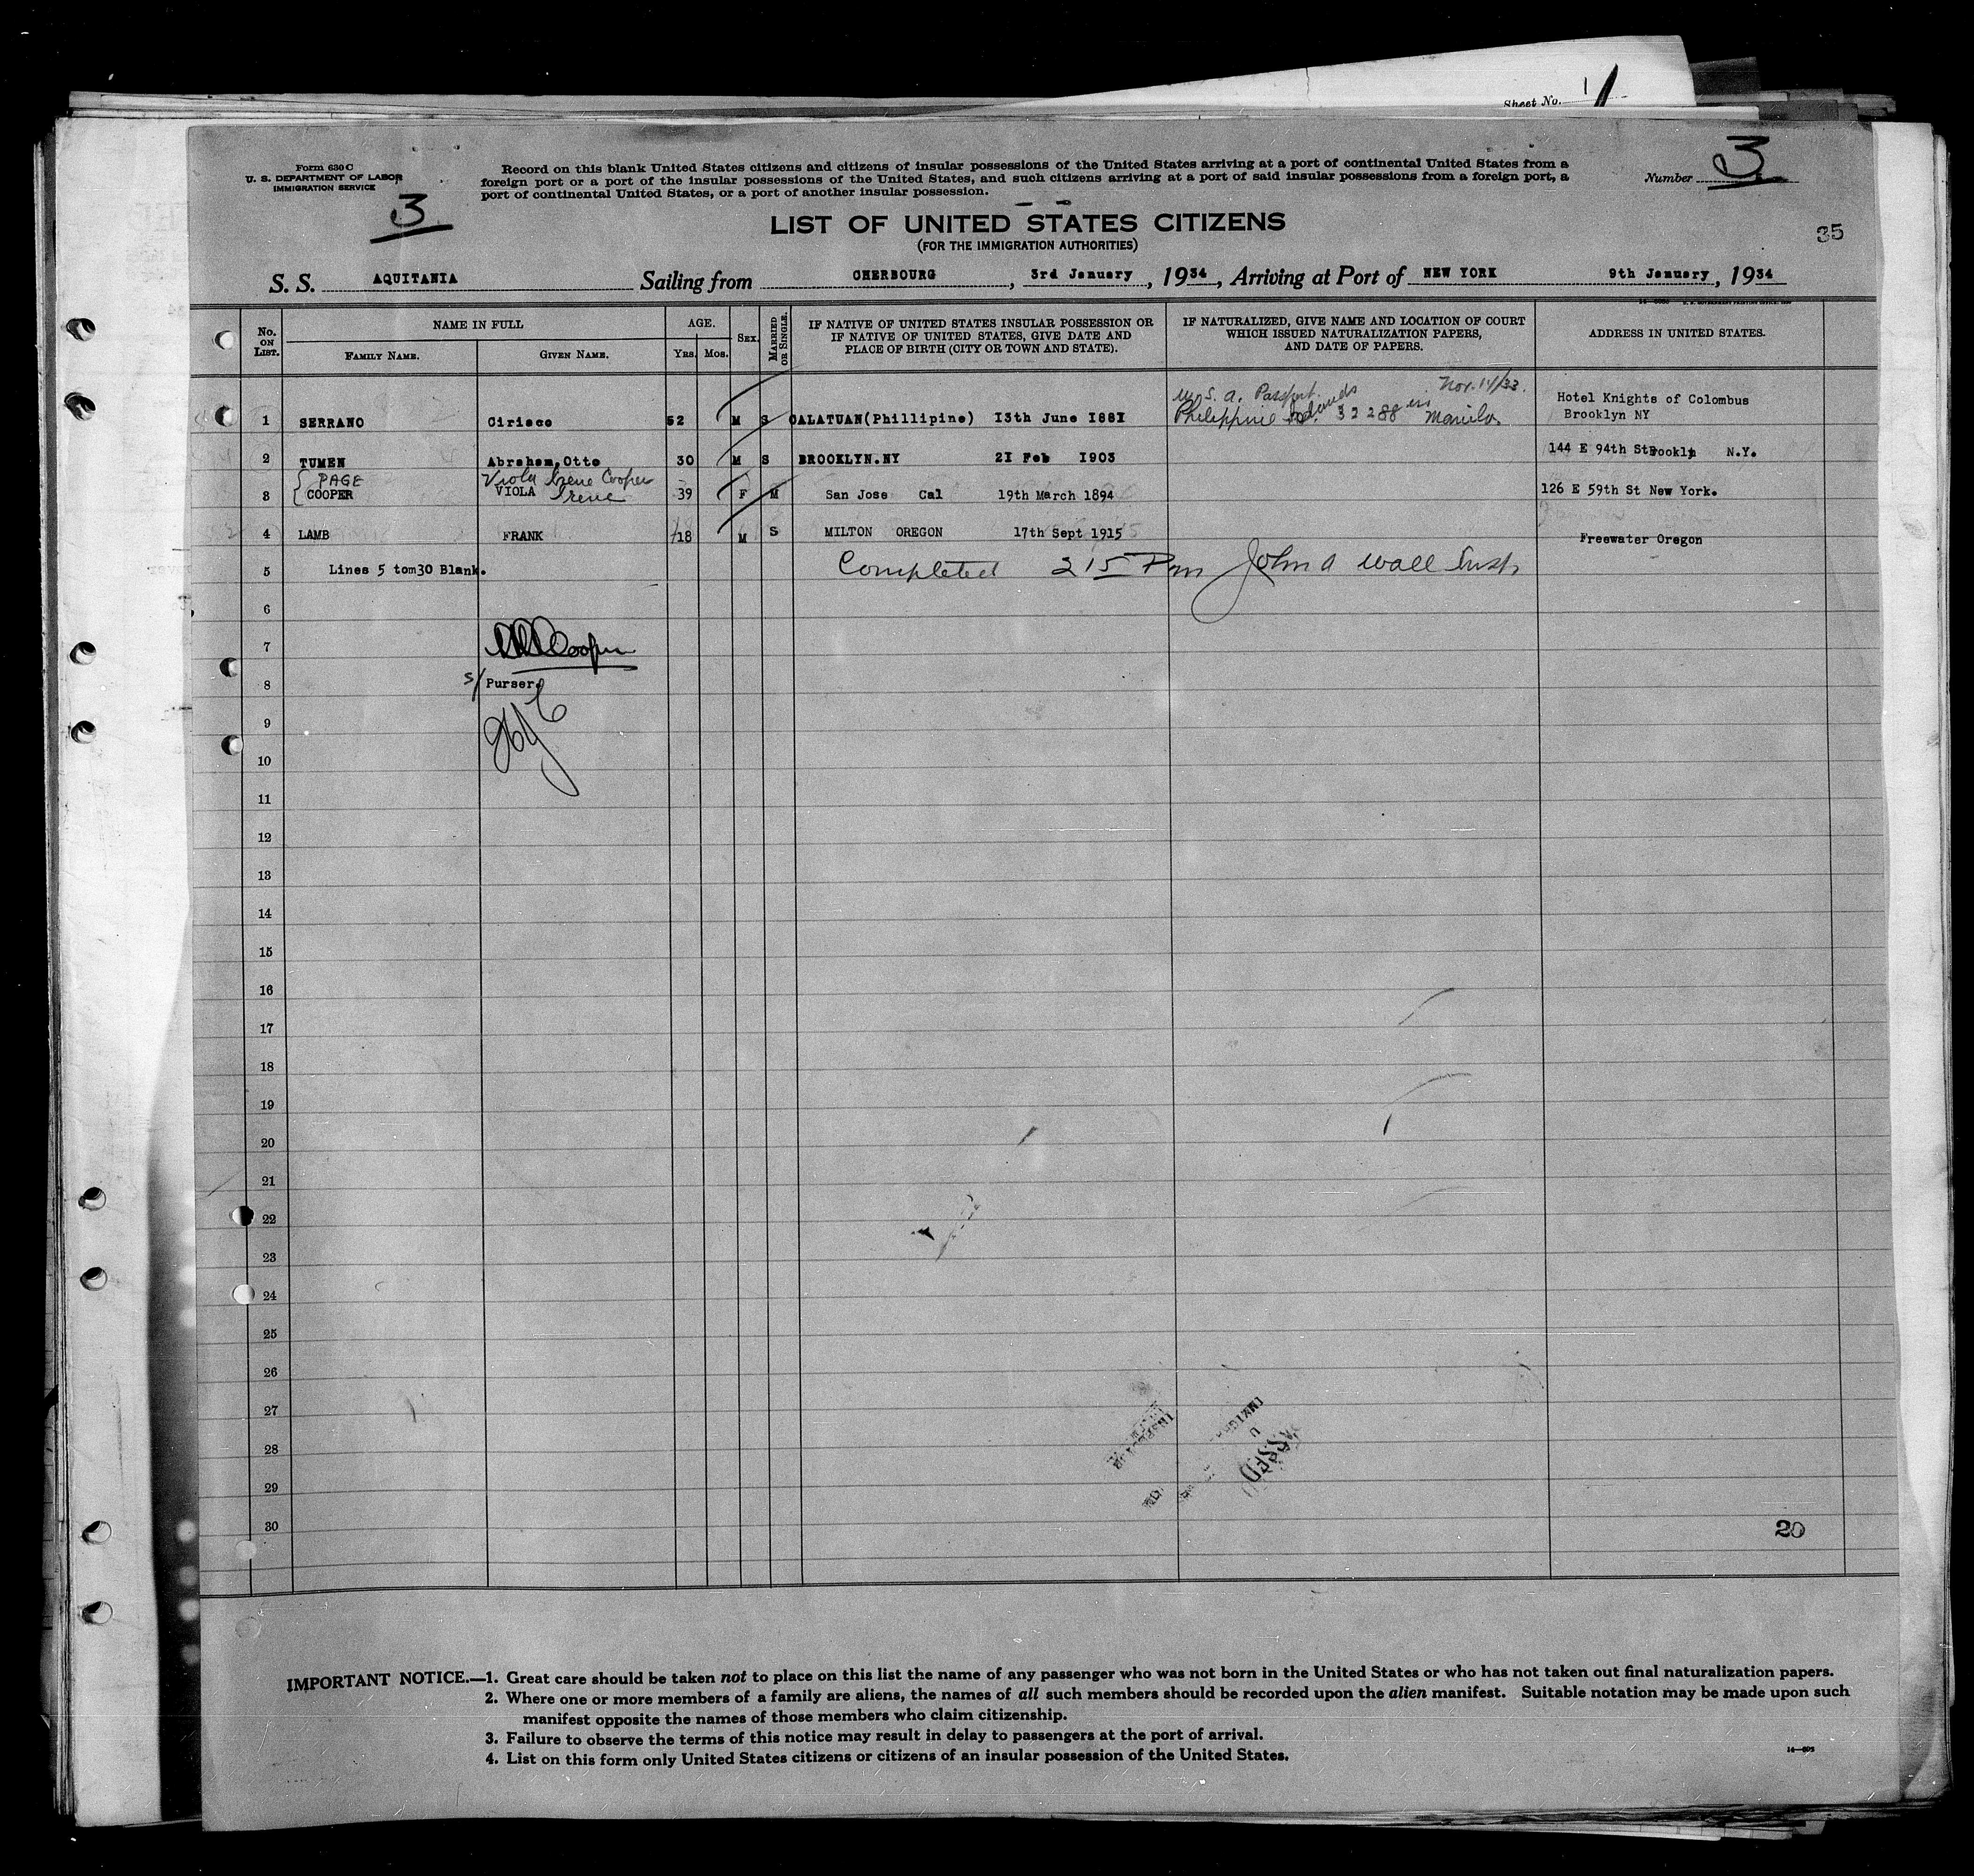 Sheet No. 1
Form 630 C
U. S. DEPARTMENT OF LABOR
IMMIGRATION SERVICE
3
Record on this blank United States citizens and citizens of insular possessions of the United States arriving at a port of continental United States from a
foreign port or a port of the insular possessions of the United States, and such citizens arriving at a port of said insular possessions from a foreign port, a
port of continental United States, or a port of another insular possession.
Number 3
LIST OF UNITED STATES CITIZENS
(FOR THE IMMIGRATION AUTHORITIES)
35
S. S. AQUITANIA Sailing from CHERBOURG, 3rd January, 1934, Arriving at Port of NEW YORK 9th January, 1934
No. ON LIST. NAME IN FULL FAMILY NAME. GIVEN NAME. AGE. Yrs. Mos. SEX. MARRIED OR SINGLE. IF NATIVE OF UNITED STATES INSULAR POSSESSION OR IF NATIVE OF UNITED STATES, GIVE DATE AND PLACE OF BIRTH (CITY OR TOWN AND STATE). IF NATURALIZED, GIVE NAME AND LOCATION OF COURT WHICH ISSUED NATURALIZATION PAPERS, AND DATE OF PAPERS. ADDRESS IN UNITED STATES.
U.S.A. Passport Nov. 14/33. Hotel Knights of Colombus
1 SERRANO Ciriaco 52 M S CALATUAN(Phillipine) 13th June 1881 Philippine Islands 32288 in Manila Brooklyn NY
2 TUMEN Abraham,Otto 30 M S BROOKLYN.NY 21 Feb 1903 144 E 94th St Brookly N.Y.
PAGE Viola Irene Cooper
3 COOPER VIOLA Irene 39 F M San Jose Cal 19th March 1894 126 E 59th St New York.
4 LAMB FRANK 18 M S MILTON OREGON 17th Sept 1915 Freewater Oregon
5 Lines 5 tom30 Blank. Completed 215 Pm John A Wall Insp
6
7 Cooper
8 s/ Purser.
9
10
11
12
13
14
15
16
17
18
19
20
21
22
23
24
25
26
27
28
29
30 20
IMPORTANT NOTICE.—1. Great care should be taken not to place on this list the name of any passenger who was not born in the United States or who has not taken out final naturalization papers.
2. Where one or more members of a family are aliens, the names of all such members should be recorded upon the alien manifest. Suitable notation may be made upon such
manifest opposite the names of those members who claim citizenship.
3. Failure to observe the terms of this notice may result in delay to passengers at the port of arrival.
4. List on this form only United States citizens or citizens of an insular possession of the United States.